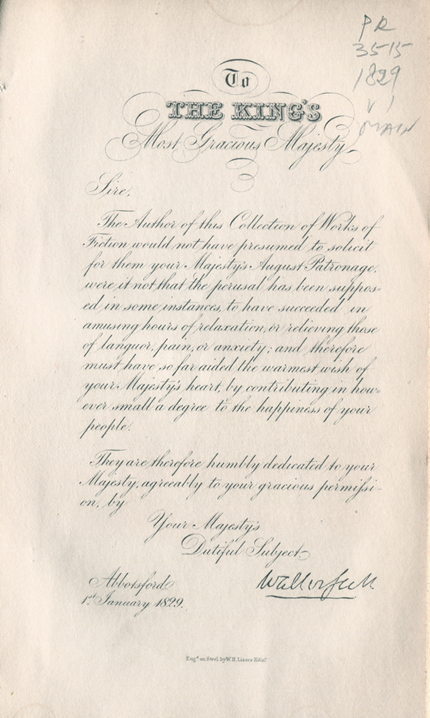 PR
3515
1829
v 1
MAIN
To
THE KING'S
Most Gracious Majesty
Sire,
The Author of this Collection of Works of
Fiction would not have presumed to solicit
for them your Majesty's August Patronage,
were it not that the perusal has been suppos-
ed in some instances, to have succeeded in
amusing hours of relaxation, or relieving those
of languor, pain, or anxiety; and therefore
must have so far aided the warmest wish of
your Majesty's heart, by contributing in how-
ever small a degree to the happiness of your
people.
They are therefore humbly dedicated to your
Majesty, agreably to your gracious permissi-
on, by
Your Majesty's
Dutiful Subject
Walter Scott
Abbotsford
1st January 1829.
Engd on Steel by W.H. Lizars Edinr